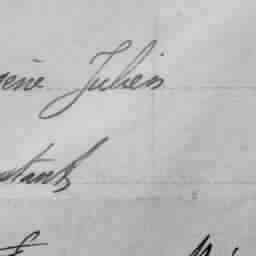 gène Julien
stant